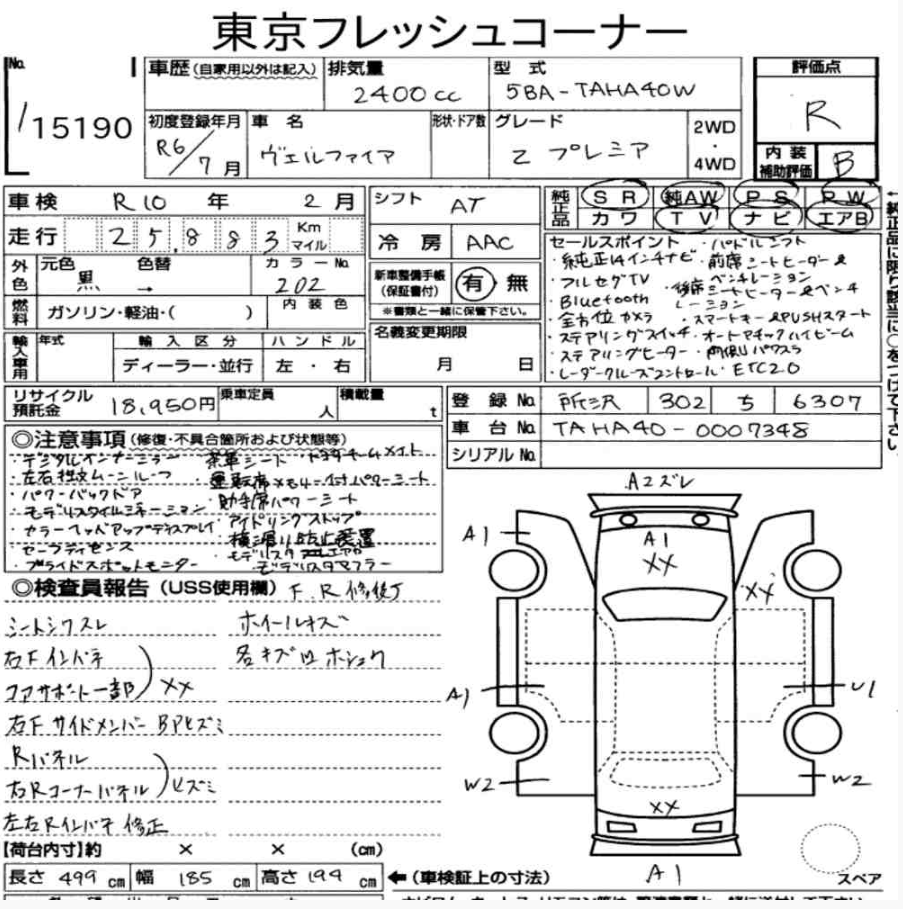 東京フレッシュコーナー
No.
15190
車歴(自家用以外は記入)
排気量
2400cc
型式
5BA-TAHA40W
評価点
R
初度登録年月
R6/7月
車名
ヴェルファイア
形状・ドア数
グレード
Z プレミア
2WD
・
4WD
内装
補助評価
B
車検 R10 年 2月
走行 25,883 Km
マイル
シフト
AT
冷房 AAC
純正品
SR 純AW PS PW
カワ TV ナビ エアB
←純正品に限り該当に○をつけて下さい
外色
元色
黒
色替
→
カラーNo.
202
燃料
ガソリン・軽油・( )
内装色
新車整備手帳
(保証書付)
有・無
※書類と一緒に保管下さい。
名義変更期限
月 日
セールスポイント ・パドルシフト
・純正14インチナビ・前席シートヒーター&
・フルセグTV ベンチレーション
・Bluetooth ・後席シートヒーター&ベンチ
レーション
・全方位カメラ ・スマートキー&PUSHスタート
・ステアリングスイッチ・オートマチックハイビーム
・ステアリングヒーター・両側パワスラ
・レーダークルーズコントロール・ETC2.0
輸入車用
年式
輸入区分
ディーラー・並行
ハンドル
左・右
リサイクル
預託金
18,950円
乗車定員
人
積載量
t
登録No. 所沢 302 ち 6307
車台No. TAHA40-0007348
シリアルNo.
◎注意事項(修復・不具合箇所および状態等)
・デジタルインナーミラー 本革シート ・トヨタチームメイト
・左右独立ムーンルーフ ・運転席メモリー付パワーシート
・パワーバックドア ・助手席パワーシート
・モデリスタイルミネーション ・アイドリングストップ
・カラーヘッドアップディスプレイ ・横滑り防止装置
・セーフティセンス ・モデリスタ エアロ
・ブラインドスポットモニター ・モデリスタマフラー
◎検査員報告(USS使用欄) F.R修復有
シートシワスレ
ホイールキズ
右Fインパネ
各キズ凹ホシュウ
コアサポート一部 XX
右Fサイドメンバー BPヒズミ
Rパネル
右Rコーナーパネル ヒズミ
左右Rインパネ 修正
A2ズレ
A1
A1
XX
XX
A1
U1
W2
W2
XX
A1
スペア
【荷台内寸】約 × × (cm)
長さ 499 cm 幅 185 cm 高さ 194 cm
←(車検証上の寸法)